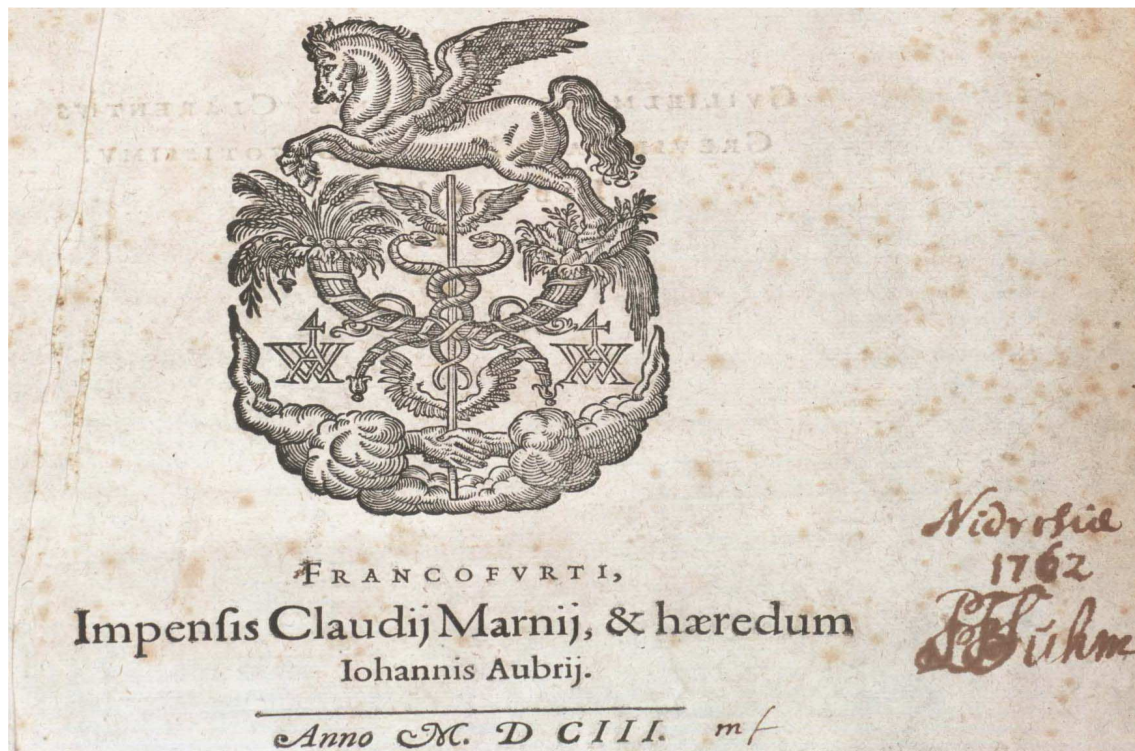 FRANCOFVRTI,
Impenſis Claudij Marnij, & hæredum
Iohannis Aubrij.
Anno M. D CIII.
Nidrosiæ
1762
PFSuhm